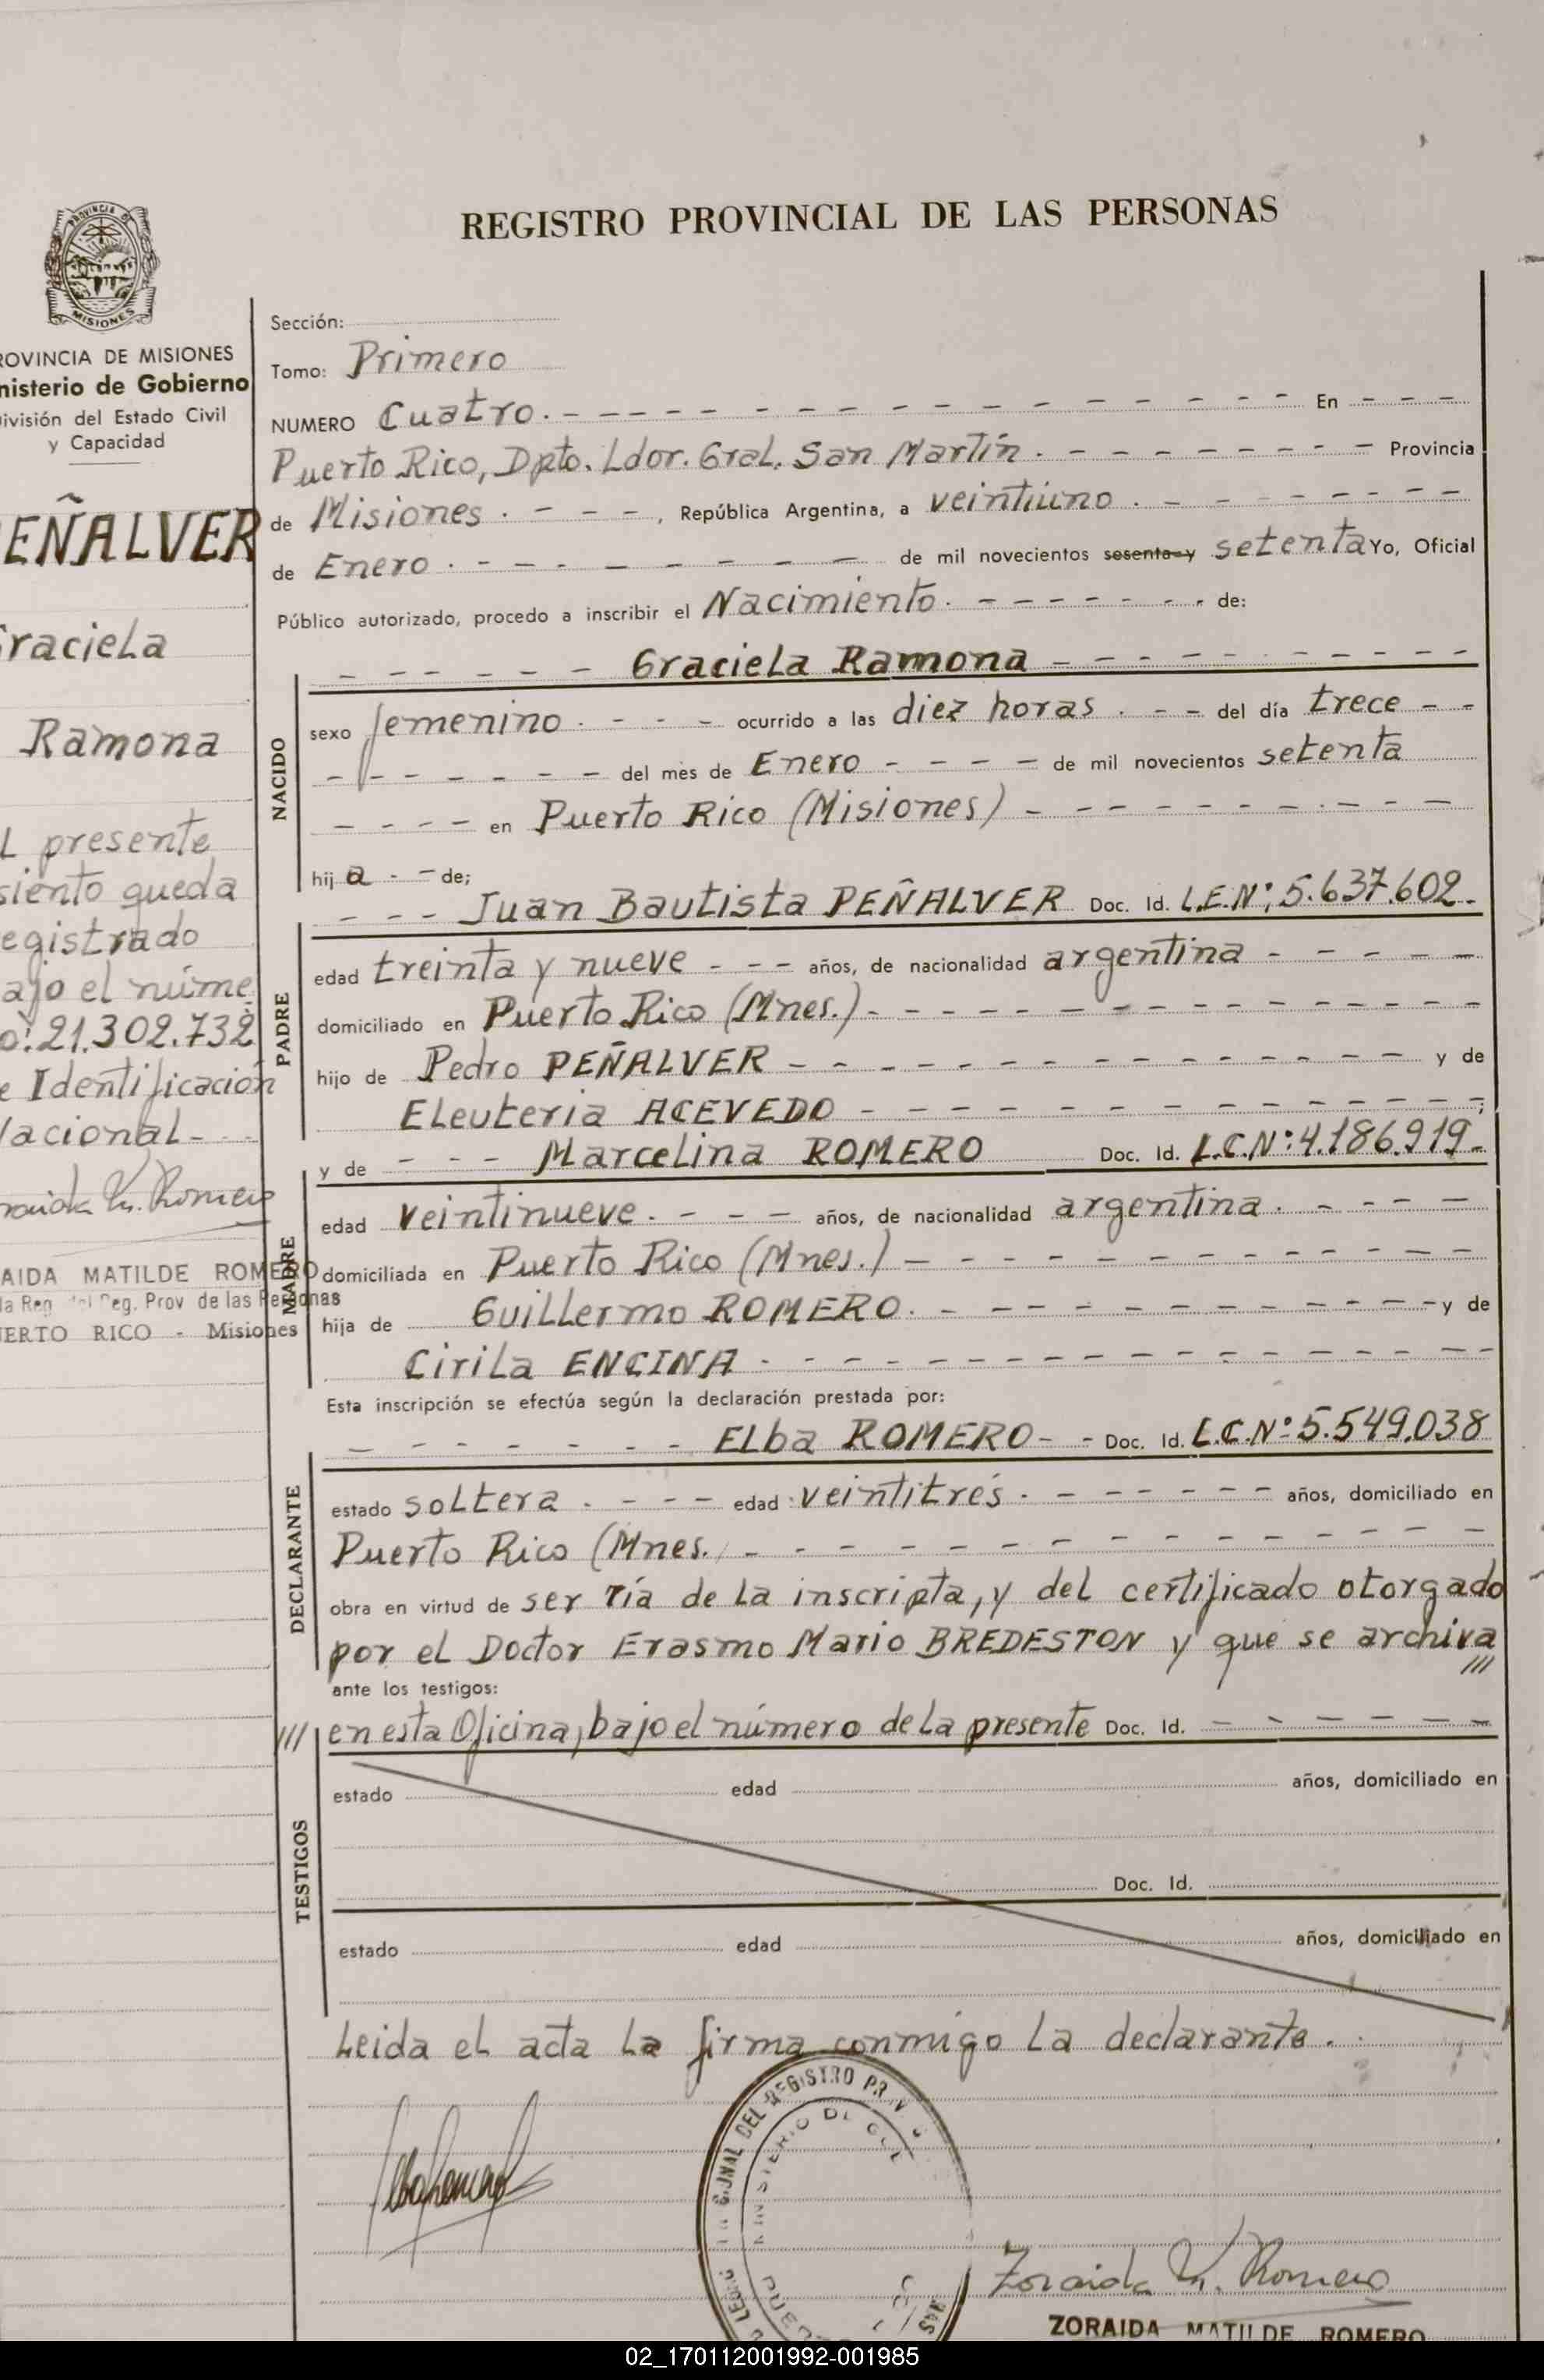 REGISTRO PROVINCIAL DE LAS PERSONAS
PROVINCIA DE
MISIONES
ROVINCIA DE MISIONES
nisterio de Gobierno
ivisión del Estado Civil
y Capacidad
EÑALVER
raciela
Ramona
L presente
siento queda
egistrado
ajo el núme
o: 21.302.732
e Identificación
acional - -
Zoraida M. Romero
AIDA MATILDE ROMERO
da Reg. del Reg. Prov de las Personas
ERTO RICO - Misiones
Sección:
Tomo: Primero
NUMERO Cuatro. - - - En - - -
Puerto Rico, Dpto. Ldor. Gral. San Martín. - - - Provincia
de Misiones. - - -, República Argentina, a veintiuno. - - -
de Enero. - - - de mil novecientos sesenta y setenta Yo, Oficial
Público autorizado, procedo a inscribir el Nacimiento. - - - de:
- - - Graciela Ramona - - -
NACIDO
sexo femenino. - - - ocurrido a las diez horas. - - del día trece - -
- - - del mes de Enero - - - de mil novecientos setenta
- - - en Puerto Rico (Misiones) - - -
hij a - - de;
- - - Juan Bautista PEÑALVER Doc. Id. L.E.Nº: 5.637.602.
PADRE
edad treinta y nueve - - - años, de nacionalidad argentina - - -
domiciliado en Puerto Rico (Mnes.) - - -
hijo de Pedro PEÑALVER - - - y de
Eleuteria ACEVEDO - - - ;
y de - - - Marcelina ROMERO Doc. Id. L.C.Nº: 4.186.919.
MADRE
edad veintinueve. - - - años, de nacionalidad argentina. - - -
domiciliada en Puerto Rico (Mnes.) - - -
hija de Guillermo ROMERO. - - - y de
Cirila ENCINA - - -
Esta inscripción se efectúa según la declaración prestada por:
- - - Elba ROMERO - - Doc. Id. L.C.Nº 5.549.038
DECLARANTE
estado soltera. - - - edad veintitrés. - - - años, domiciliado en
Puerto Rico (Mnes.) - - -
obra en virtud de ser tía de la inscripta, y del certificado otorgado
por el Doctor Erasmo Mario BREDESTON y que se archiva
///
ante los testigos:
/// en esta Oficina, bajo el número de la presente Doc. Id. - - -
TESTIGOS
estado edad años, domiciliado en
Doc. Id.
estado edad años, domiciliado en
Leida el acta la firma conmigo la declarante.
Zoraida M. Romero
ZORAIDA MATILDE ROMERO
02_170112001992-001985